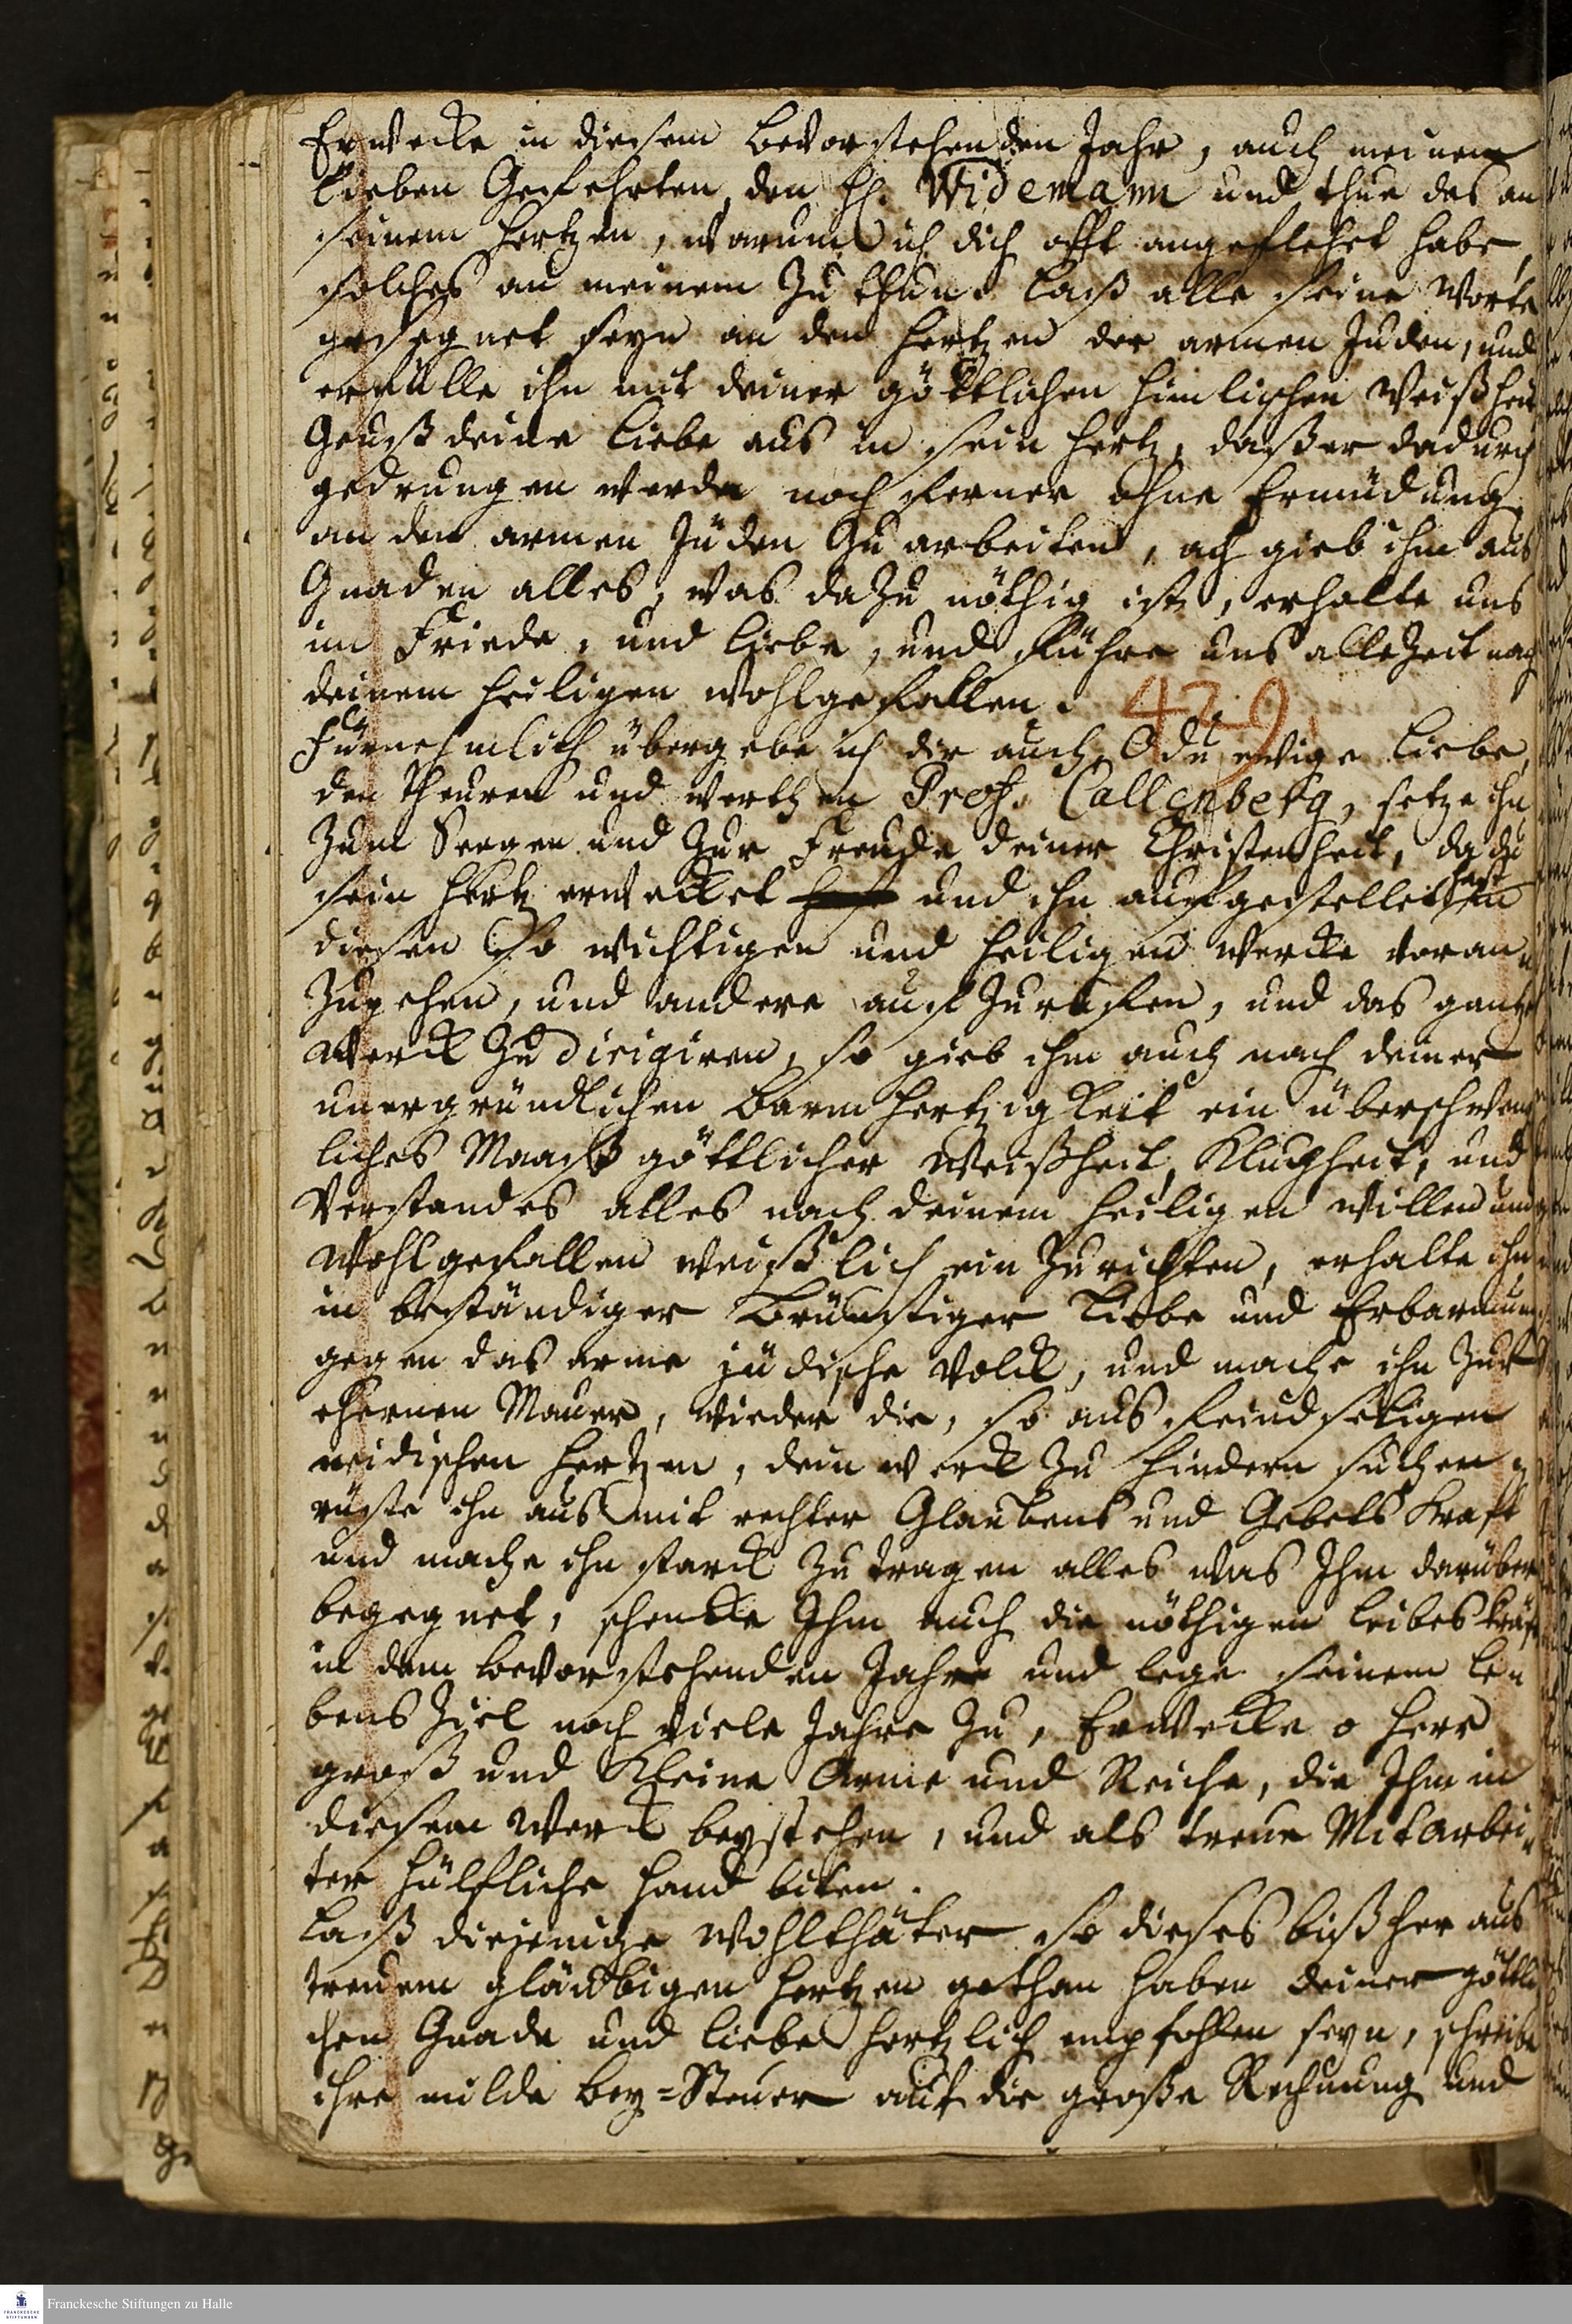 Erwecke in diesem bevorstehenden Jahr, auch meinen
lieben Gefehrten, den H. Widemann und thue das an
seinem Hertzen, warum ich dich offt angeflehet habe,
solches an meinem zu thun. laß alle seine Worte
gesegnet seyn an den Hertzen der armen Juden, und
erfülle ihn mit deiner göttlichen himlischen Weißheit
Geuß deine Liebe aus in sein Hertz, daß er dadurch
gedrungen werde noch ferner ohne Ermüdung
an den armen Jüden zu arbeiten, ach gieb ihm aus
Gnaden alles, was dazu nöthig ist, erhalte uns
im Friede, und Liebe, und führe uns allezeit nach
deinem heiligen wohlgefallen.
429.
Fürnehmlich übergebe ich dir auch, O du ewige Liebe,
den theuren und werthen Prof. Callenberg, setze ihn
zum Seegen und zur Freude deiner Christenheit, da du
sein Hertz erwecket hast und ihn aufgestellet hast
diesen so wichtigen und heiligen Wercke voran
zugehen, und andere auf zuruffen, und das gantze
Werck zu dirigiren, so gieb ihm auch nach deiner
unergründlichen Barmhertzigkeit ein überschweng
liches Maaß göttlicher Weißheit, Klugheit, und
Verstandes alles nach deinem heiligen willen und
Wohlgefallen weißlich ein zurichten, erhalte ihn
in beständiger brünstiger Liebe und Erbarmung
gegen das arme jüdische Volck, und mache ihn zur
ehernen Mauer, wieder die, so aus feindseligen
neidischen Hertzen, dein werck zu hindern suchen,
rüste ihn aus mit rechter Glaubens und Gebets Krafft
und mache ihn starck zu tragen alles was Ihm darüber
begegnet, schencke Ihm auch die nöthigen leibes kräfte
in dem bevorstehenden Jahre und lege seinem Le
bens Ziel noch viele Jahre zu, Erwecke o Herr
groß und Kleine Arme und Reiche, die Ihm in
diesem Werck beystehen, und als treue Mitarbei
ter hülfliche Hand biten.
Laß diejenige Wohlthäter so dieses bißher aus
treuem gläubigen Hertzen gethan haben deiner göttli
chen Gnade und Liebe hertzlich empfohlen seyn, schreibe
ihre milde Bey=Steuer auf die große Rechnung und
Franckesche Stiftungen zu Halle